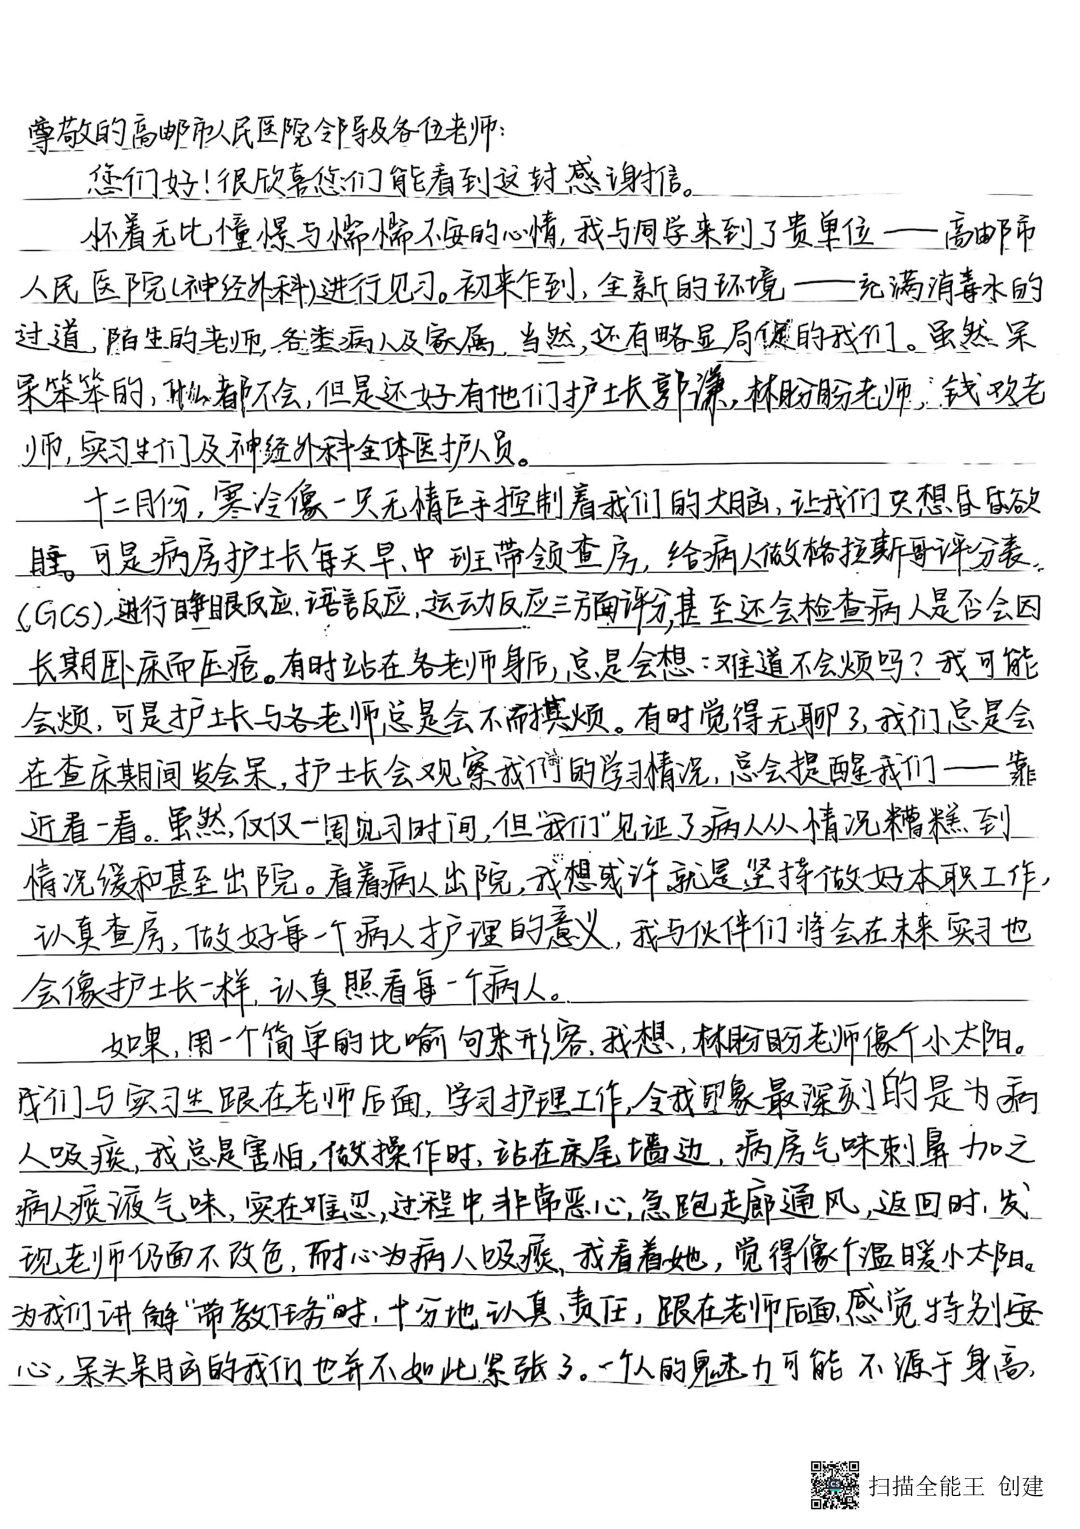 尊敬的高邮市人民医院领导及各位老师：
您们好！很欣喜您们能看到这封感谢信。
怀着无比憧憬与惴惴不安的心情，我与同学来到了贵单位——高邮市
人民医院(神经外科)进行见习。初来乍到，全新的环境——充满消毒水的
过道，陌生的老师，各类病人及家属，当然，还有略显局促的我们。虽然呆
呆笨笨的，什么都不会，但是还好有他们护士长郭谦，林盼盼老师，钱欢老
师，实习生们及神经外科全体医护人员。
十二月份，寒冷像一只无情巨手控制着我们的大脑，让我们只想昏昏欲
睡。可是病房护士长每天早、中班带领查房，给病人做格拉斯哥评分表
(GCS)，进行睁眼反应、语言反应、运动反应三方面评分，甚至还会检查病人是否会因
长期卧床而压疮。有时站在各老师身后，总是会想：难道不会烦吗？我可能
会烦，可是护士长与各老师总是会不而其烦。有时觉得无聊了，我们总是会
在查床期间发会呆，护士长会观察我们的学习情况，总会提醒我们——靠
近看一看。虽然，仅仅一周见习时间，但“我们”见证了病人从情况糟糕到
情况缓和甚至出院。看着病人出院，我想或许就是坚持做好本职工作，
认真查房，做好每一个病人护理的意义，我与伙伴们将会在未来实习也
会像护士长一样，认真照看每一个病人。
如果，用一个简单的比喻句来形容，我想，林盼盼老师像个小太阳。
我们与实习生跟在老师后面，学习护理工作，令我印象最深刻的是为病
人吸痰，我总是害怕，做操作时，站在床尾墙边，病房气味刺鼻加之
病人痰液气味，实在难忍，过程中，非常恶心，急跑走廊通风，返回时，发
现老师仍面不改色，耐心为病人吸痰，我看着她，觉得像个温暖小太阳。
为我们讲解“带教任务”时，十分地认真、责任，跟在老师后面，感觉特别安
心，呆头呆脑的我们也并不如此紧张了。一个人的魅力可能不源于身高，
扫描全能王 创建